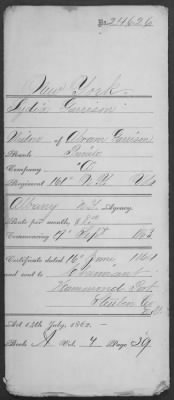 No 24626
New York
Lydia Garrison
Widow of Abram Garrison
Rank Private
Company "A"
Regiment 161st N.Y. Vols
Albany N.Y. Agency.
Rate per month, 8
Commencing 17 Sept 1863
Certificate dated 16 June, 1864
and sent to
Hammond Port
Steuben Co
Act 14th July, 1862.
Book A Vol. 4 Page 59